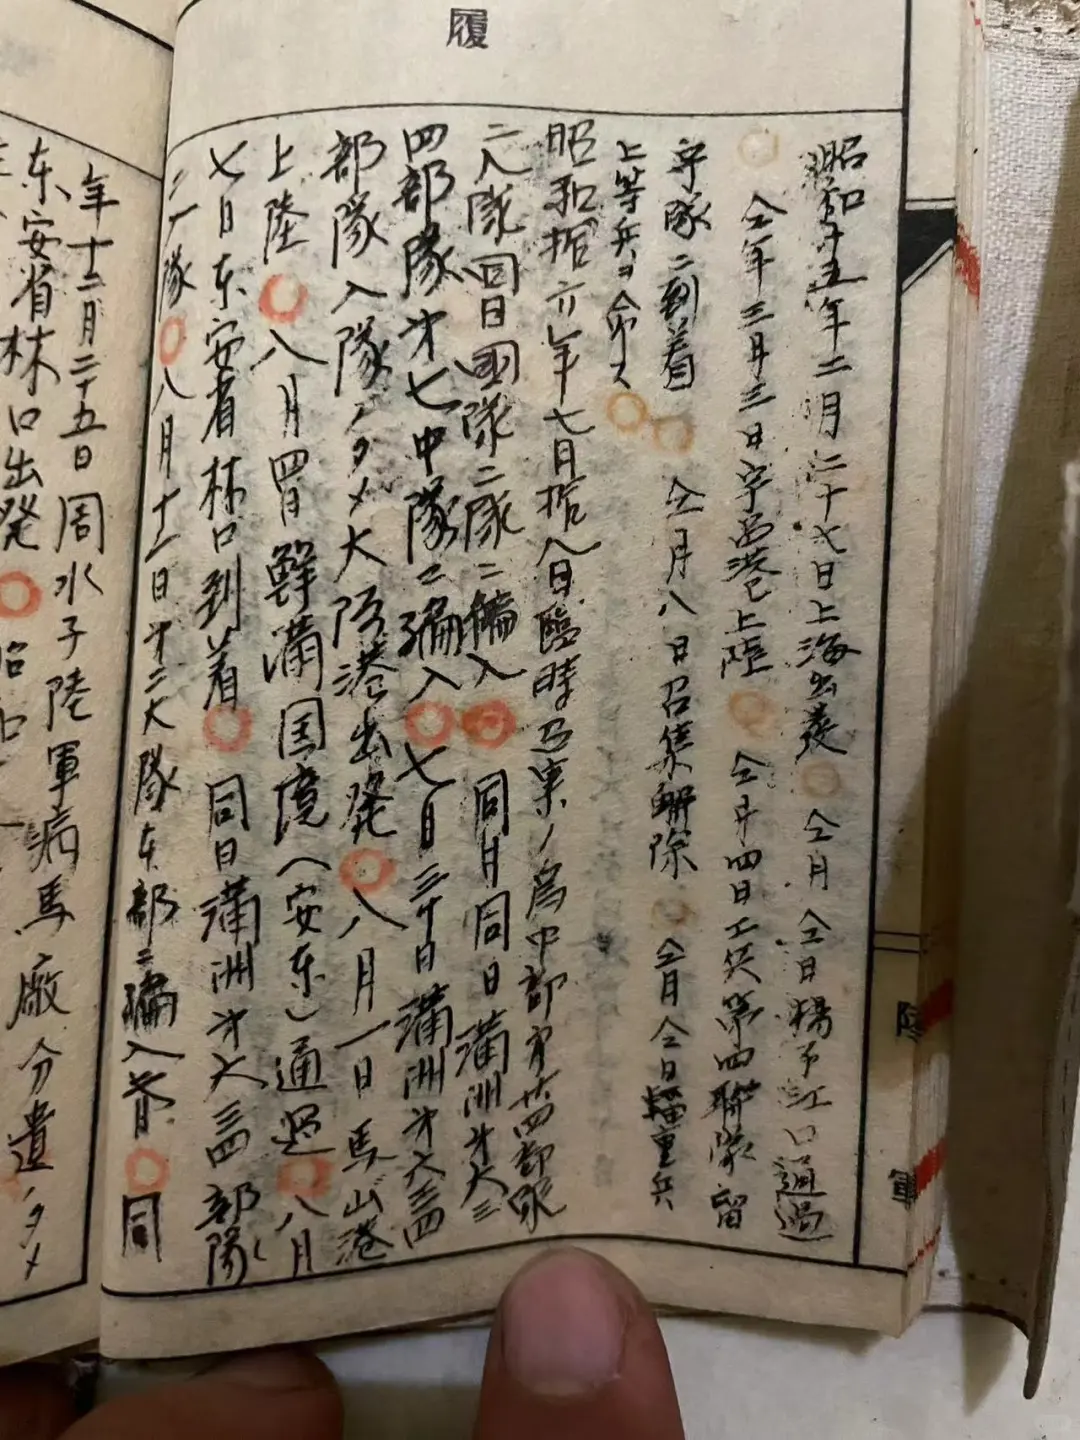 履
昭和十五年二月二十七日上海出発 仝月仝日揚子江口通過
仝年三月三日宇品港上陸 仝年四日工兵第四聯隊留
守隊ニ到着 仝月八日召集解除 仝月仝日輜重兵
上等兵ヲ命ス
昭和拾六年七月拾八日臨時 ノ為中部才廿四部隊
ニ入隊同日 隊ニ編入 同月同日満洲才六三
四部隊才七中隊ニ編入 七月三十日満洲才六三四
部隊入隊ノタメ大阪港出発 八月一日馬山港
上陸 八月四日鮮満国境(安東)通過 八月
七日东安省林口到着 同日満洲才六三四部隊
ニ入隊 八月十一日才二大隊本部ニ編入 同
年十二月二十五日周水子陸軍病馬廠分遣ノタメ
东安省林口出発
陸
軍